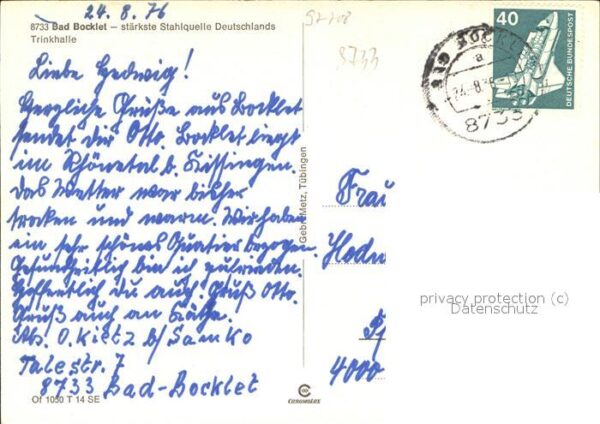 24.8.76
8733 Bad Bocklet – stärkste Stahlquelle Deutschlands
Trinkhalle
Liebe Hedwig!
Herzliche Grüße aus Bocklet
sendet dir Otto. Bocklet liegt
im Rhönetal b. Kissingen.
Das Wetter war bisher
trocken und warm. Wir haben
ein sehr schönes Quartier bezogen.
Gesundheitlich bin ich zufrieden.
Hoffentlich du auch. Gruß Otto.
Gruß auch an Käthe.
Abs. O. Kietz b/ Samko
Talestr. 7
8733 Bad-Bocklet
Of 1050 T 14 SE
Gebr. Metz, Tübingen
CHROMOLUX
8733
40
DEUTSCHE BUNDESPOST
BAD BOCKLET
a
24.-8.76
8733
Frau
Hedw
4000
privacy protection (c)
Datenschutz